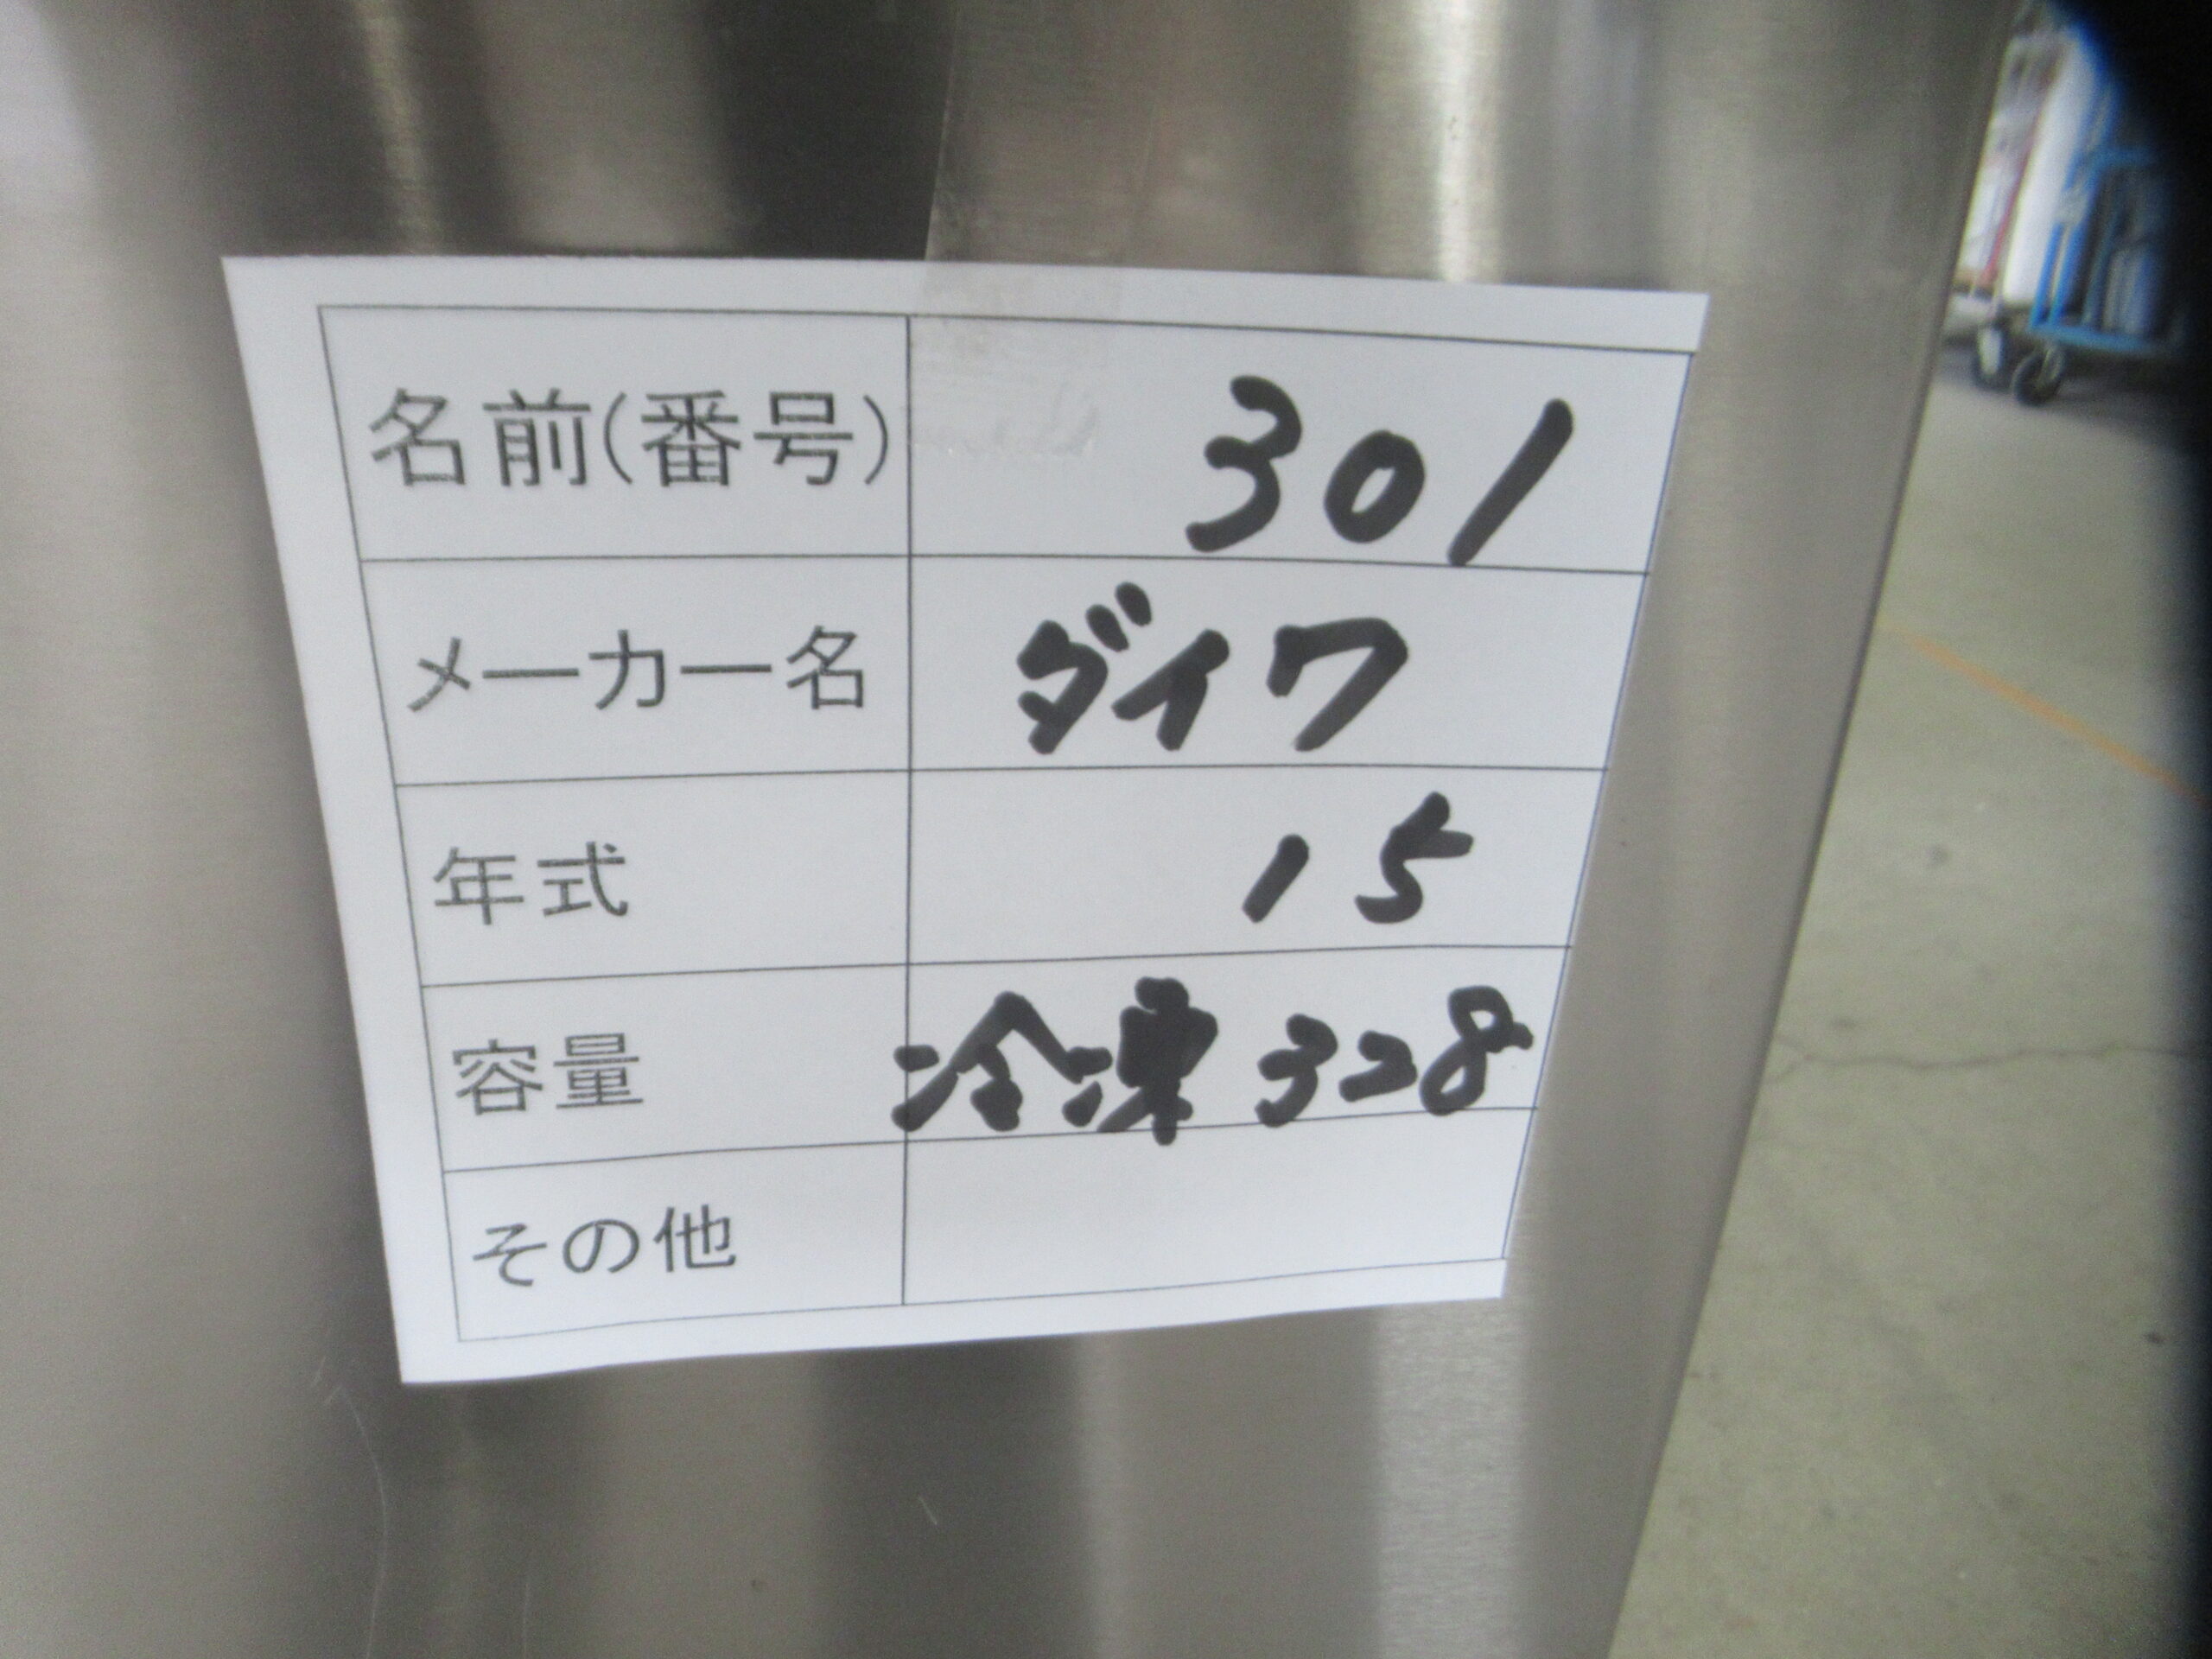 名前(番号) 301
メーカー名 ダイワ
年式 15
容量 冷凍 328
その他